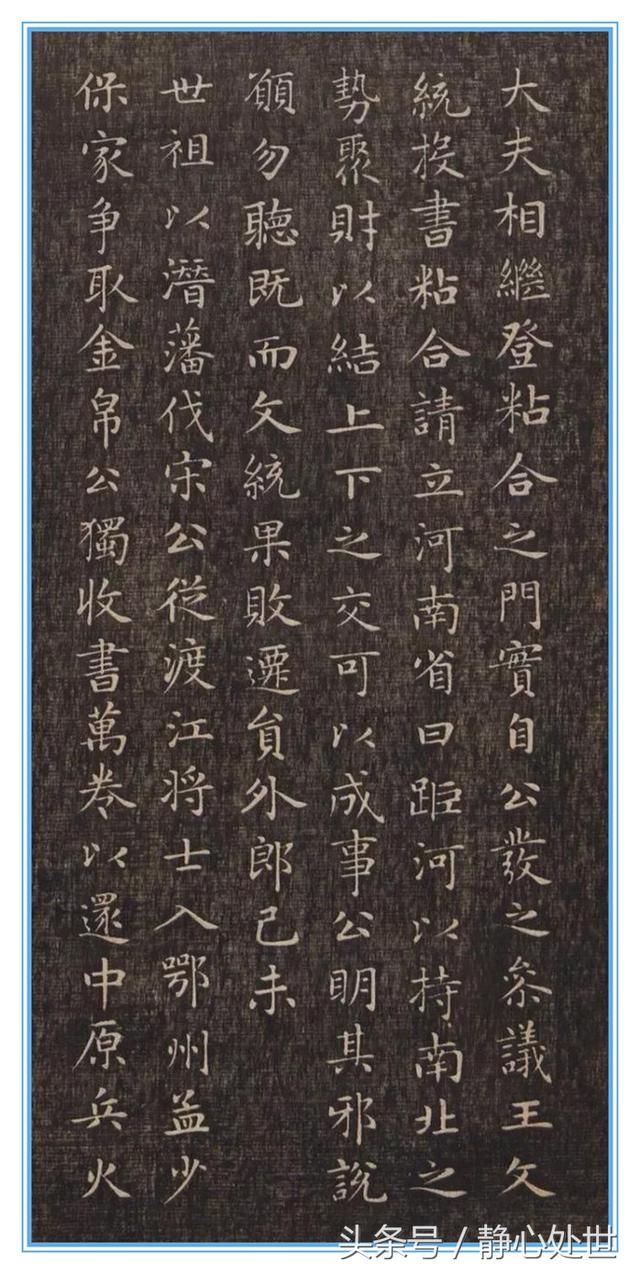 大夫相繼登粘合之門實自公發之叅議王文
統投書粘合請立河南省曰距河以持南北之
勢聚財以結上下之交可以成事公明其邪說
願勿聽既而文統果敗遷貟外郎己未
世祖以潛藩伐宋公從渡江將士入鄂州益少
保家爭取金帛公獨收書萬卷以還中原兵火
头条号 / 静心处世